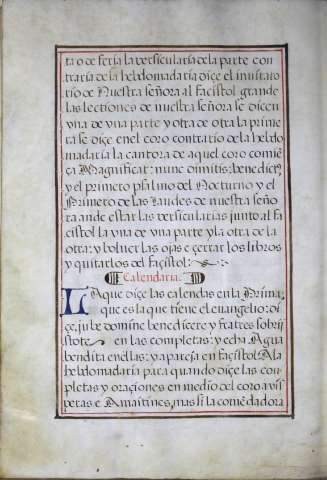 ta o de feria la versicularia de la parte con
traria de la hebdomadaria diçe el invitato
rio de Nuestra señora al façistol grande
las lectiones de nuestra señora se dicen
vna de vna parte y otra de otra la prime
ra se diçe en el coro contrario de la hebdo
madaria la cantora de aquel coro comiē
ça Magnificat: nunc dimitis: benedict9
y el primero psalmo del Nocturno y el
Primero de las Laudes de nuestra seño
ra an de estar las versicularias junto al fa
cistol la vna de vna parte y la otra de la
otra: y bolver las ojas e çerrar los libros
y quitarlos del façistol:
Calendaria.
LA que diçe las calendas en la Prima,
que es la que tiene el evangelio: di
çe, jube domine benedicere y fratres sobrij
estote en las completas: y echa Agua
bendita en ellas: y apareja en façistol: A la
hebdomadaria para quando diçe las com
pletas y oraçiones en medio del coro a vis
peras e Amaitines, mas si la comēdadora